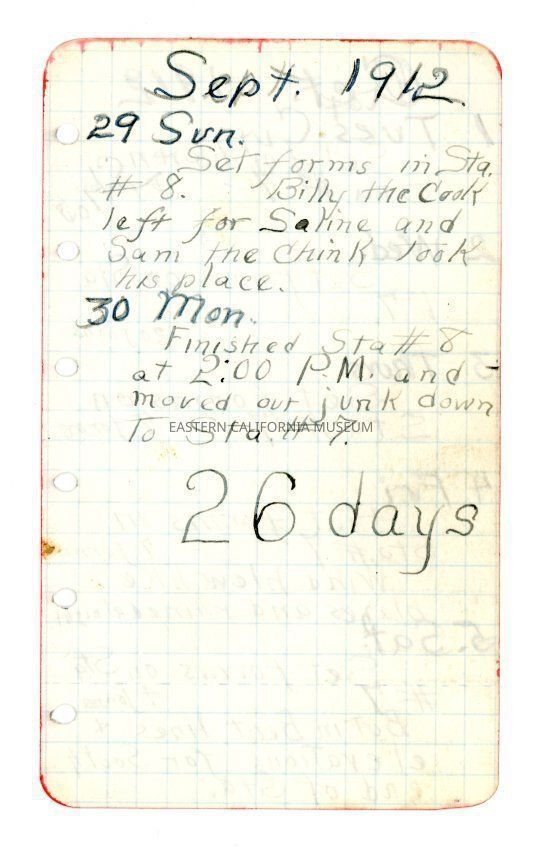 Sept. 1912
29 Sun.
Set forms in Sta.
# 8. Billy the Cook
left for Saline and
Sam the Chink took
his place.
30 Mon.
Finished Sta # 8
at 2:00 P.M. and
moved our junk down
To Sta. # 7.
EASTERN CALIFORNIA MUSEUM
26 days